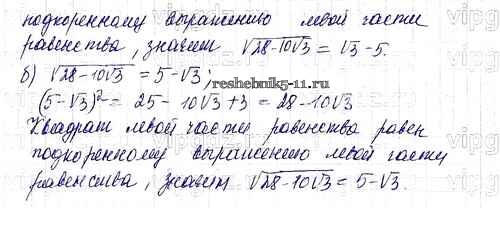 подкоренному выражению левой части
равенства, значит √28-10√3 = √3-5.
б) √28-10√3 = 5-√3;
reshebnik5-11.ru
(5-√3)²= 25- 10√3+3 = 28-10√3
Квадрат левой части равенства равен
подкоренному выражению левой части
равенства, значит √28-10√3 = 5-√3.